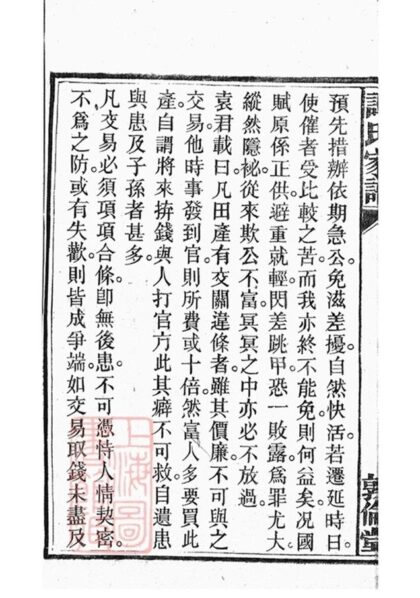 氏家譜
敦倫堂
預先措辦依期急公。免滋差擾。自然快活。若遷延時日。
使催者受比較之苦。而我亦終不能免。則何益矣。況國
賦原係正供。避重就輕。閃差跳甲。恐一敗露。爲罪尤大。
縱然隱祕。從來欺公不富。冥冥之中。亦必不放過。
袁君載曰。凡田產有交關違條者。雖其價廉。不可與之
交易。他時事發到官。則所費或十倍。然富人多要買此
產。自謂將來拚錢與人打官方。此其癖不可救。自遺患
與患及子孫者甚多。
凡交易必須項項合條。卽無後患。不可憑恃人情契密。
不爲之防。或有失歡。則皆成爭端。如交易取錢未盡及
上海圖